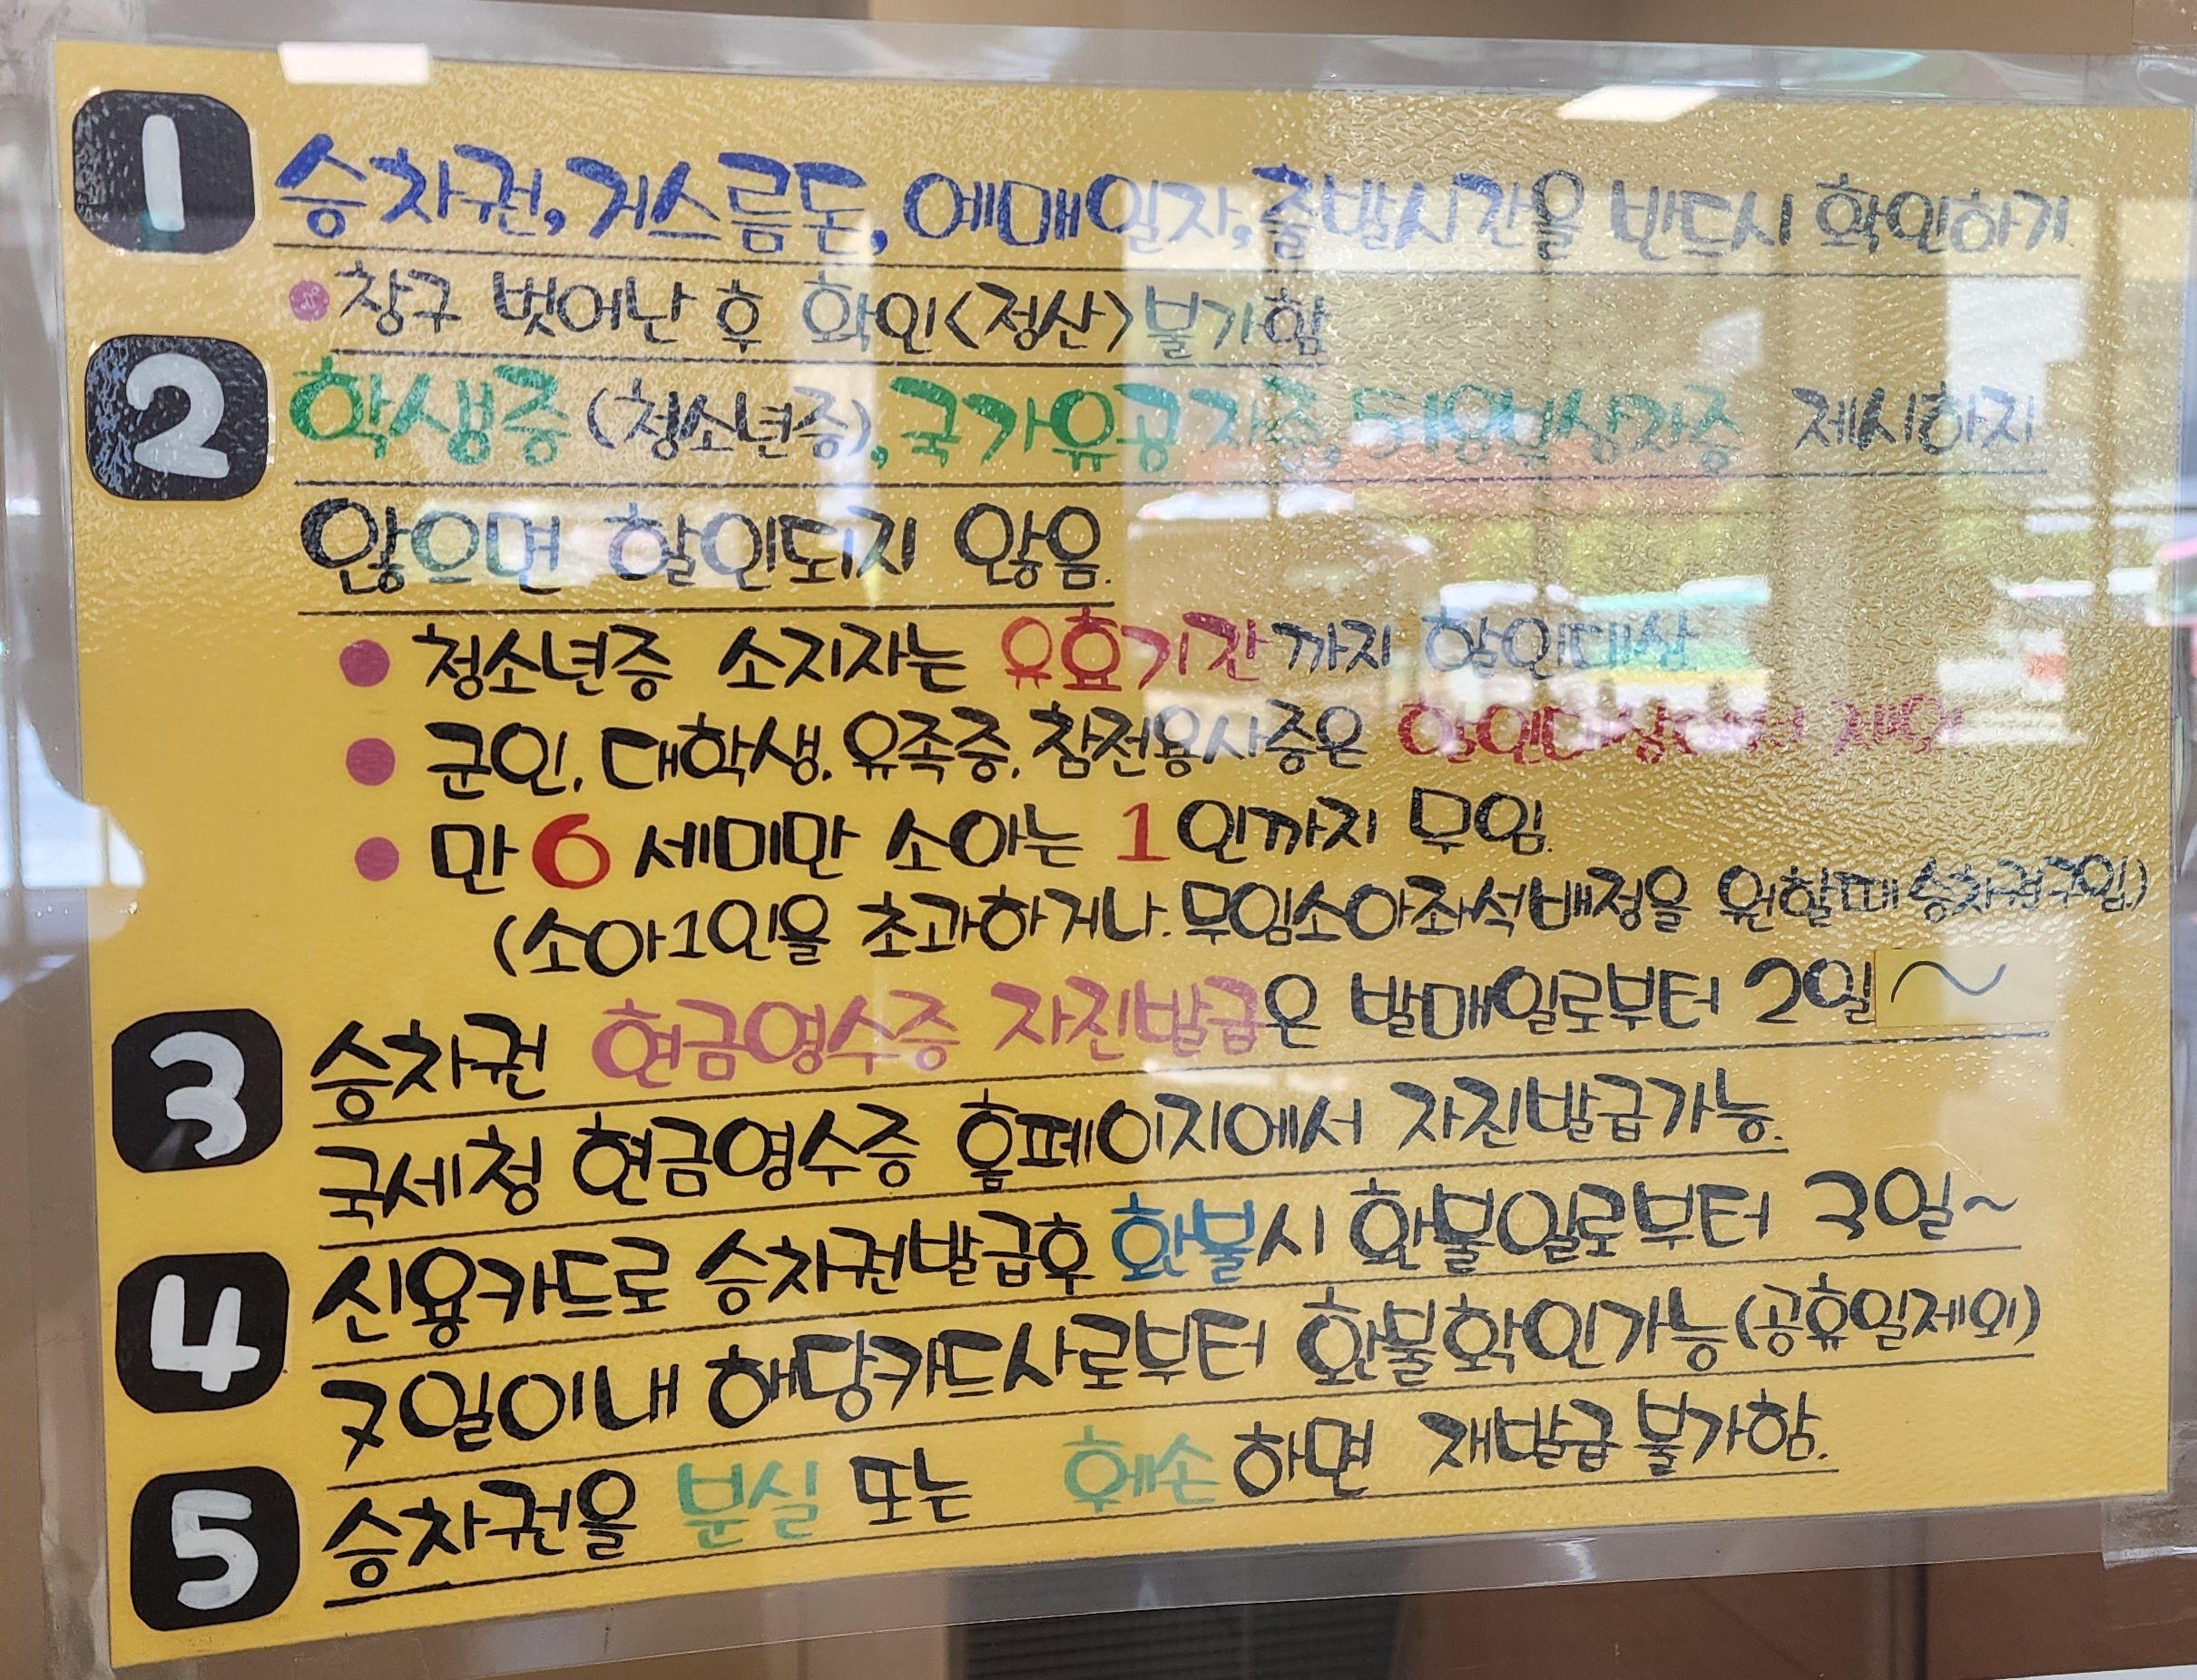 1 승차권, 거스름돈, 예매일자, 출발시간을 반드시 확인하기
• 창구 벗어난 후 확인<정산>불가함
2 학생증(청소년증), 국가유공자증, 518부상자증 제시하지
않으면 할인되지 않음.
• 청소년증 소지자는 유효기간까지 할인대상
• 군인, 대학생, 유족증, 참전용사증은 할인대상에서 제외
• 만 6세미만 소아는 1인까지 무임.
(소아1인을 초과하거나, 무임소아좌석배정을 원할때 승차권구입.)
3 승차권 현금영수증 자진발급은 발매일로부터 2일~
국세청 현금영수증 홈페이지에서 자진발급가능.
4 신용카드로 승차권발급후 환불시 환불일로부터 3일~
7일이내 해당카드사로부터 환불확인가능(공휴일제외)
5 승차권을 분실 또는 훼손하면 재발급불가함.